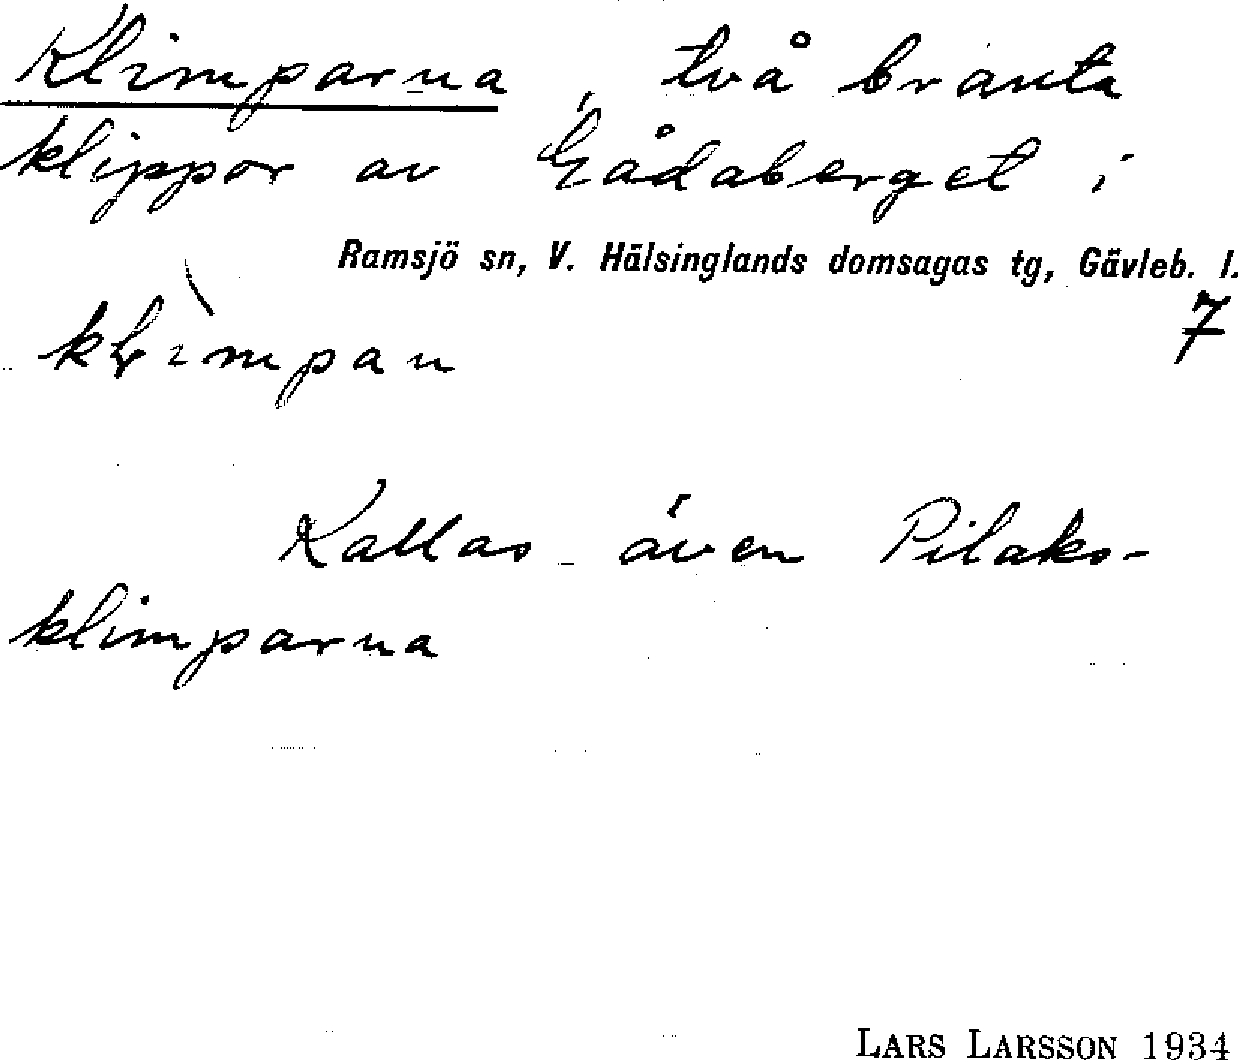 Klimparna, två branta
klippor av Gådaberget i
Ramsjö sn, V. Hälsinglands domsagas tg, Gävleb. l.
7
klìmpan
Kallas även Pilaks-
klimparna
LARS LARSSON 1934